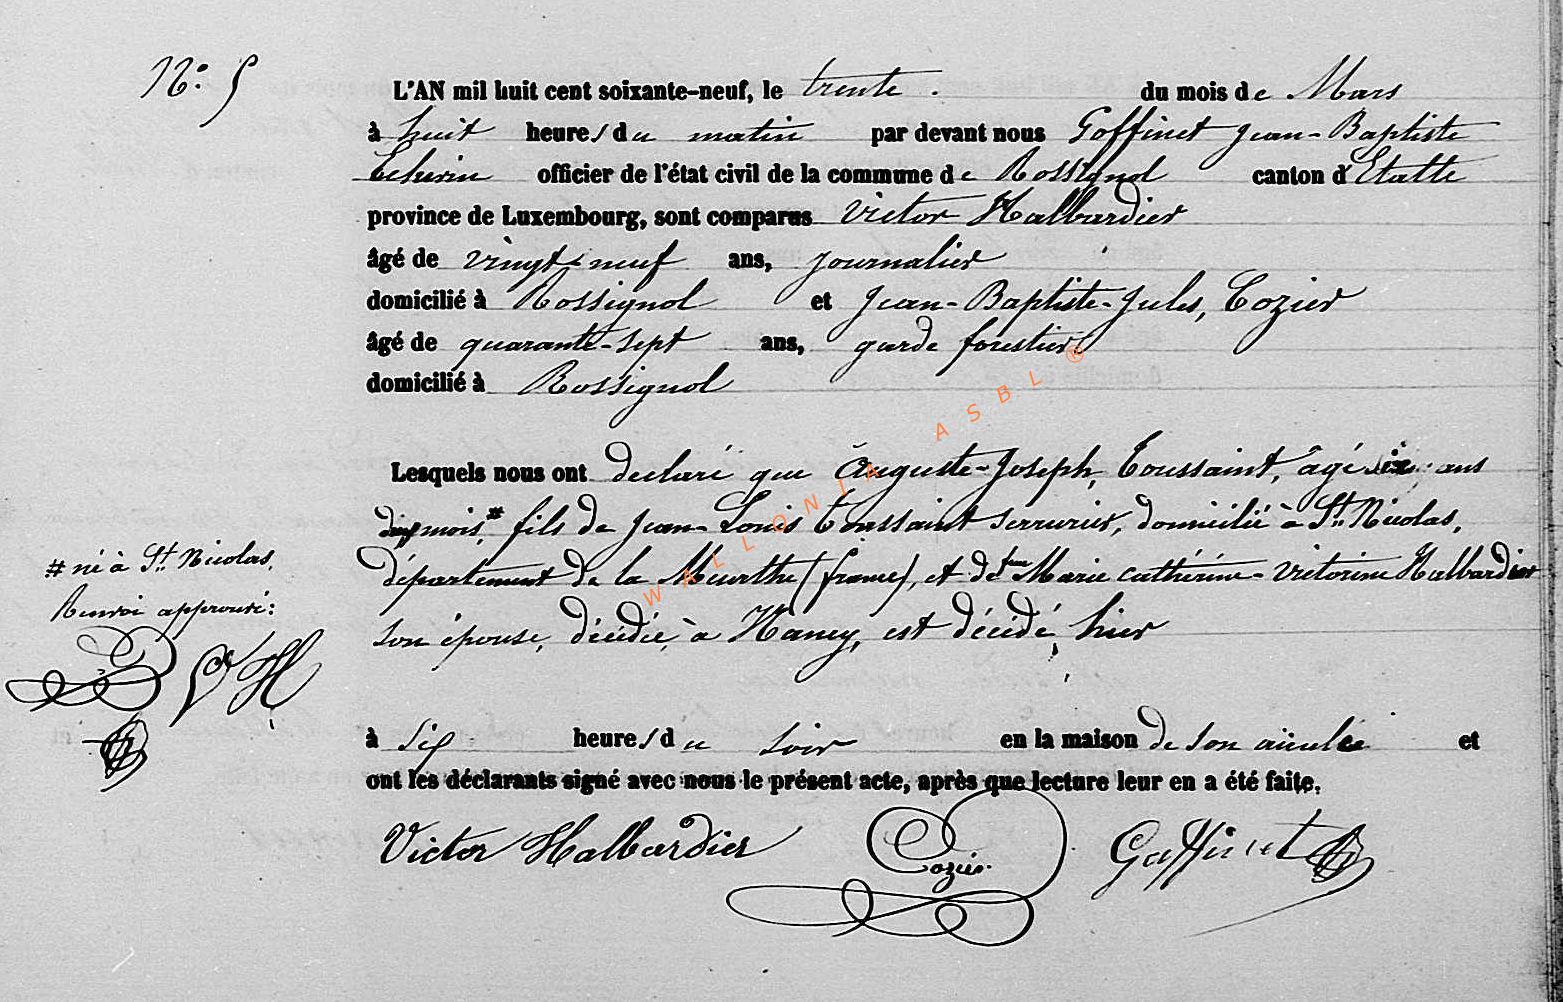 N° 5
L'AN mil huit cent soixante-neuf, le trente du mois de Mars
à huit heures du matin par devant nous Goffinet Jean-Baptiste
Echevin officier de l'état civil de la commune de Rossignol canton d'Etalle
province de Luxembourg, sont comparus Victor Halbardier
âgé de vingt-neuf ans, journalier
domicilié à Rossignol et Jean-Baptiste-Jules, Cozier
âgé de quarante-sept ans, garde forestier
domicilié à Rossignol
Lesquels nous ont déclaré que Auguste-Joseph, Toussaint, âgé six ans
mois,# fils de Jean-Louis Toussaint serrurier, domicilié à St. Nicolas,
département de la Meurthe (france), et de Marie Cathérine-Victorine Halbardier
son épouse, décédée, à Nancy, est décédé, hier
# né à St. Nicolas,
Renvoi approuvé:
VH
à six heures du soir en la maison de son aïeule et
ont les déclarants signé avec nous le présent acte, après que lecture leur en a été faite.
Victor Halbardier Cozier Goffinet
WALLONIA ASBL ®